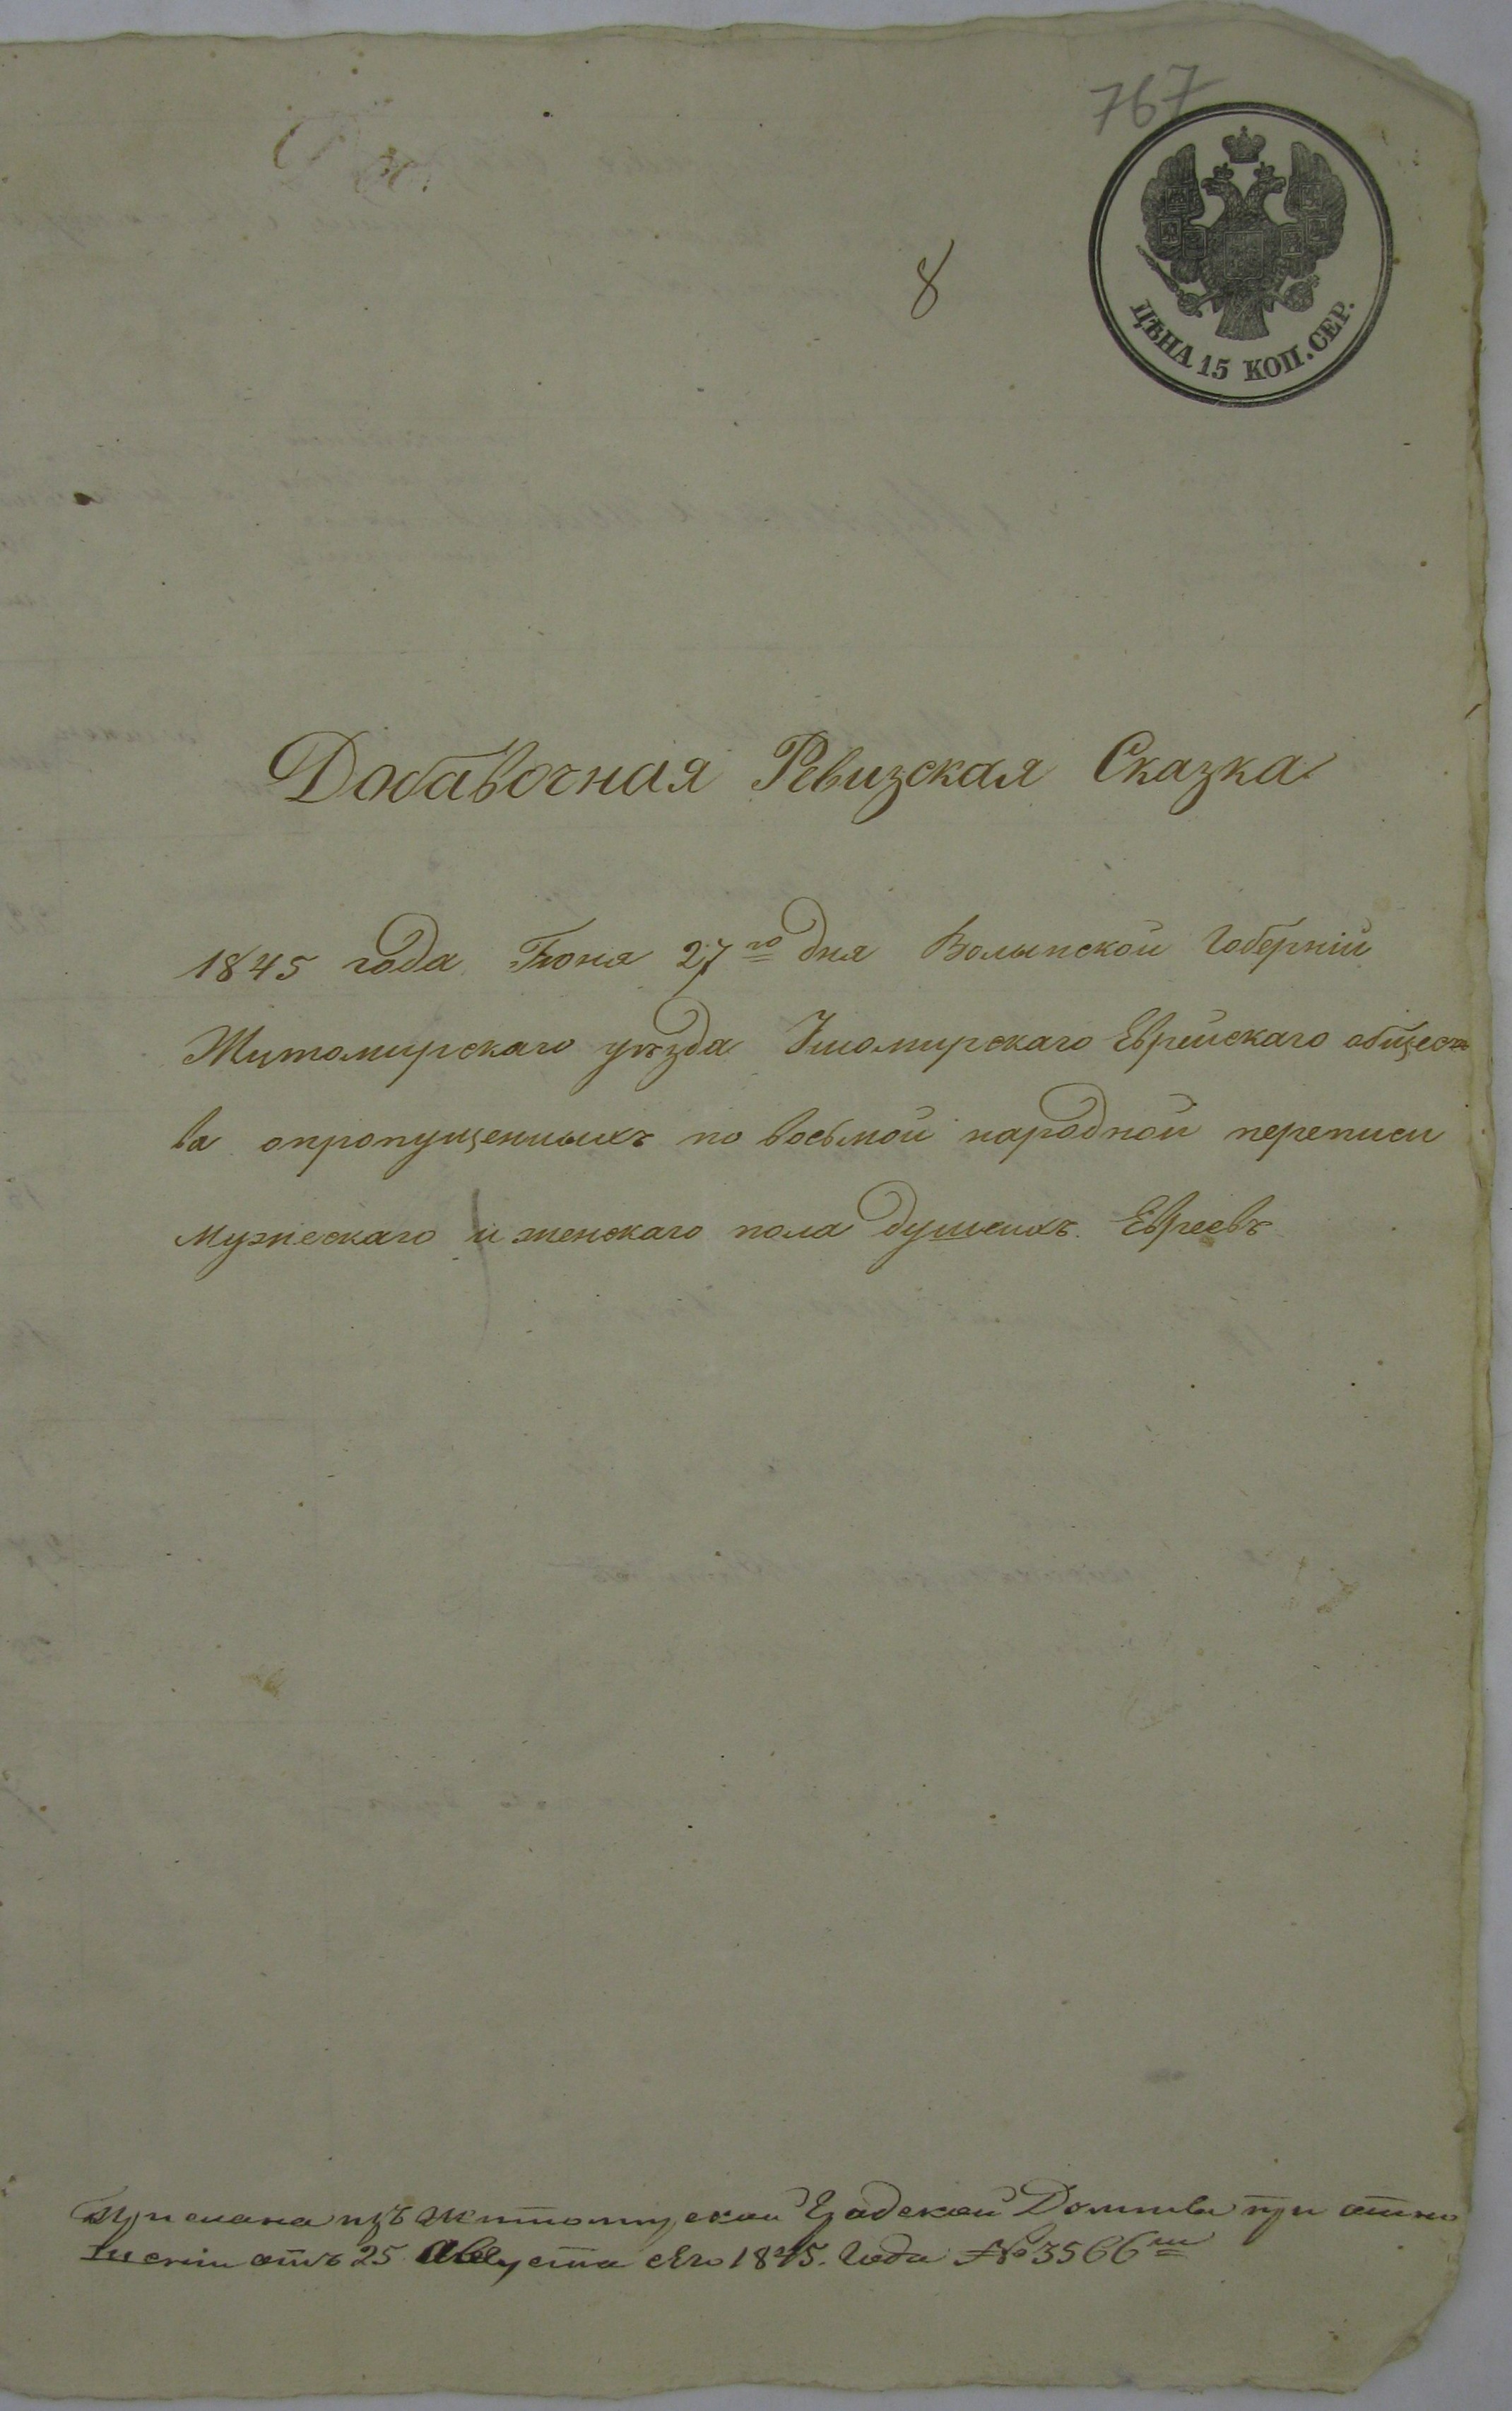 767
8
ЦѢНА 15 КОП. СЕР.
Добавочная Ревизская Сказка
1845 года Іюня 27го дня Волынской Губерніи
Житомирскаго уѣзда Ушомирскаго Еврейскаго общест
ва опропущенныхъ по восьмой народной переписи
мужескаго и женскаго пола душахъ Евреевъ
Прислана изъ Житомирской Градской Думы при отно
шеніи отъ 25 Августа сего 1845. года №3566